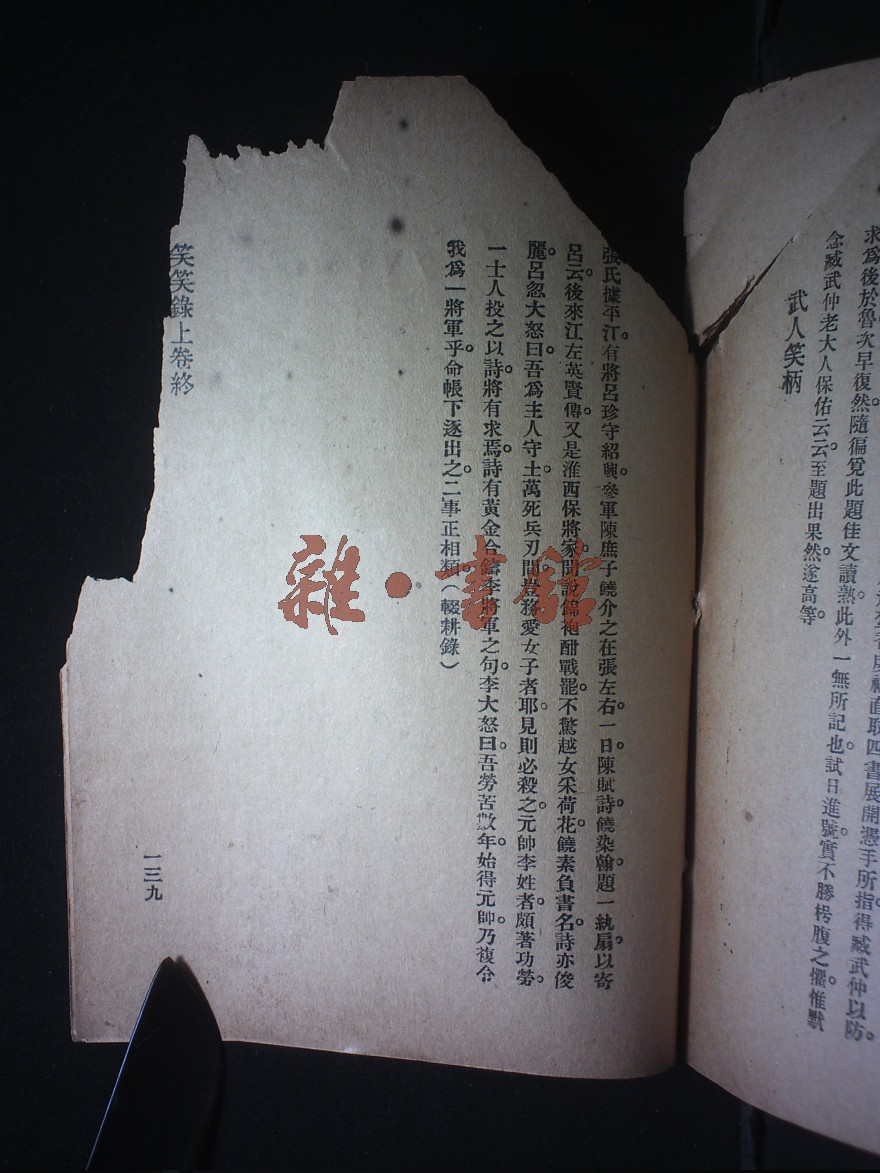 求爲後於魯次早復然隨徧覓此題佳文讀熟此外一無所記也試日進號實不勝枵腹之懼惟默
念臧武仲老大人保佑云云至題出果然遂高等。
武人笑柄
張氏據平江。有將呂珍守紹興。參軍陳庶子饒介之在張左右。一日陳賦詩。饒染翰題一紈扇。以寄
呂云。後來江左英賢傳。又是淮西保將家。聞說錦袍酣戰罷。不驚越女采荷花。饒素負書名。詩亦俊
麗。呂忽大怒曰。吾爲主人守土。萬死兵刃間。豈務愛女子者耶。見則必殺之。元帥李姓者。頗著功勞。
一士人投之以詩。將有求焉。詩有黃金合鑄李將軍之句。李大怒曰。吾勞苦數年。始得元帥。乃複令
我爲一將軍乎。命帳下逐出之。二事正相類。(輟耕錄)
笑笑錄上卷終
一三九
雜·書館